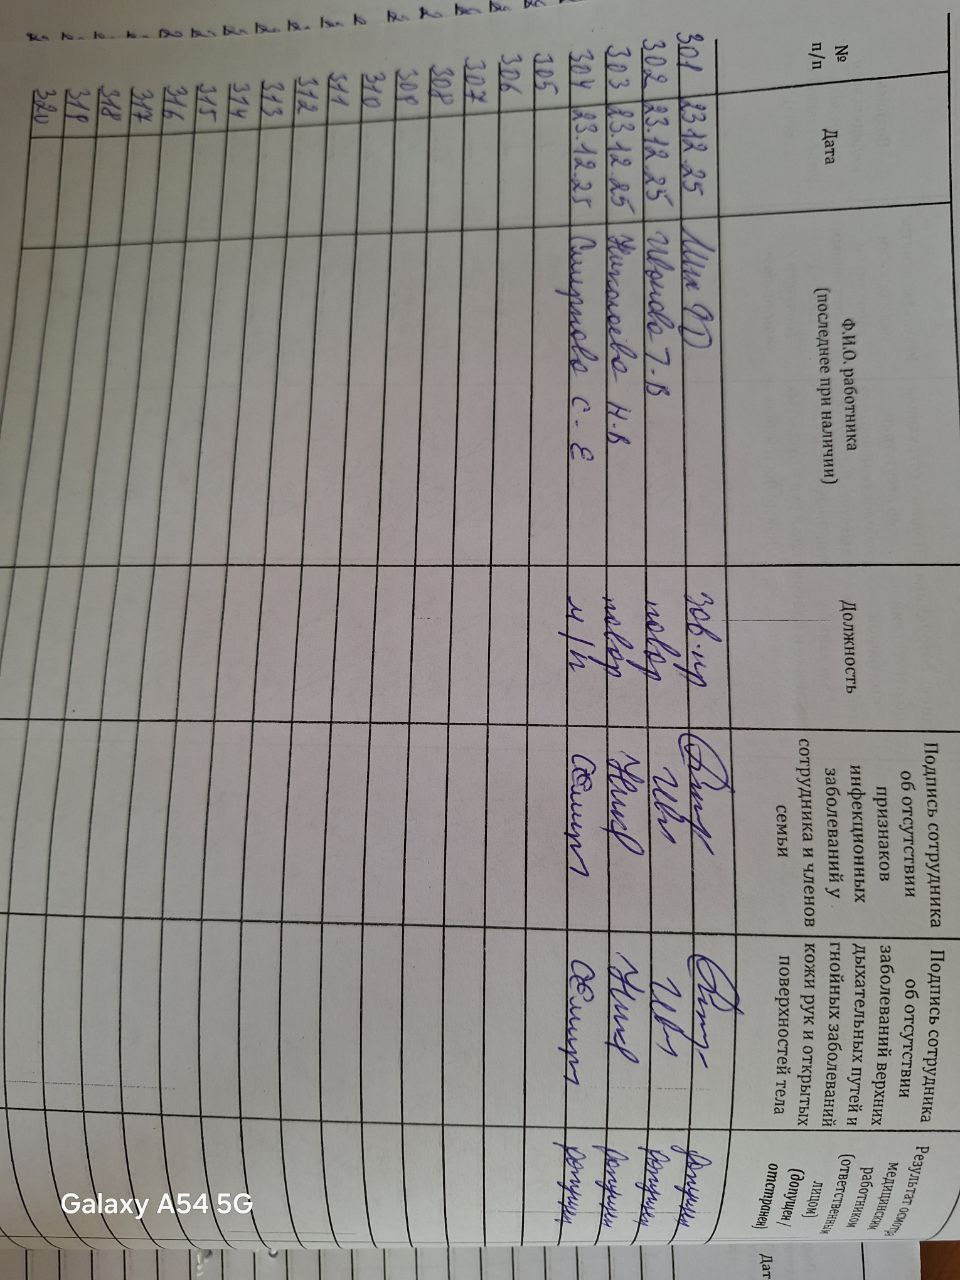 № п/п
Дата
Ф.И.О. работника
(последнее при наличии)
Должность
Подпись сотрудника
об отсутствии
признаков
инфекционных
заболеваний у
сотрудника и членов
семьи
Подпись сотрудника
об отсутствии
заболеваний верхних
дыхательных путей и
гнойных заболеваний
кожи рук и открытых
поверхностей тела
Результат осмотра
медицинским
работником
(ответственным
лицом)
(допущен /
отстранен)
301 23.12.25 зав.пр допущен
302 23.12.25 Иванова Т.В повар Ив допущен
303 23.12.25 Николаева Н.В повар Ник допущен
304 23.12.25 Смирнова С.Е м/п Смирн допущен
305
306
307
308
309
310
311
312
313
314
315
316
317
318
319
320
Дат
Galaxy A54 5G